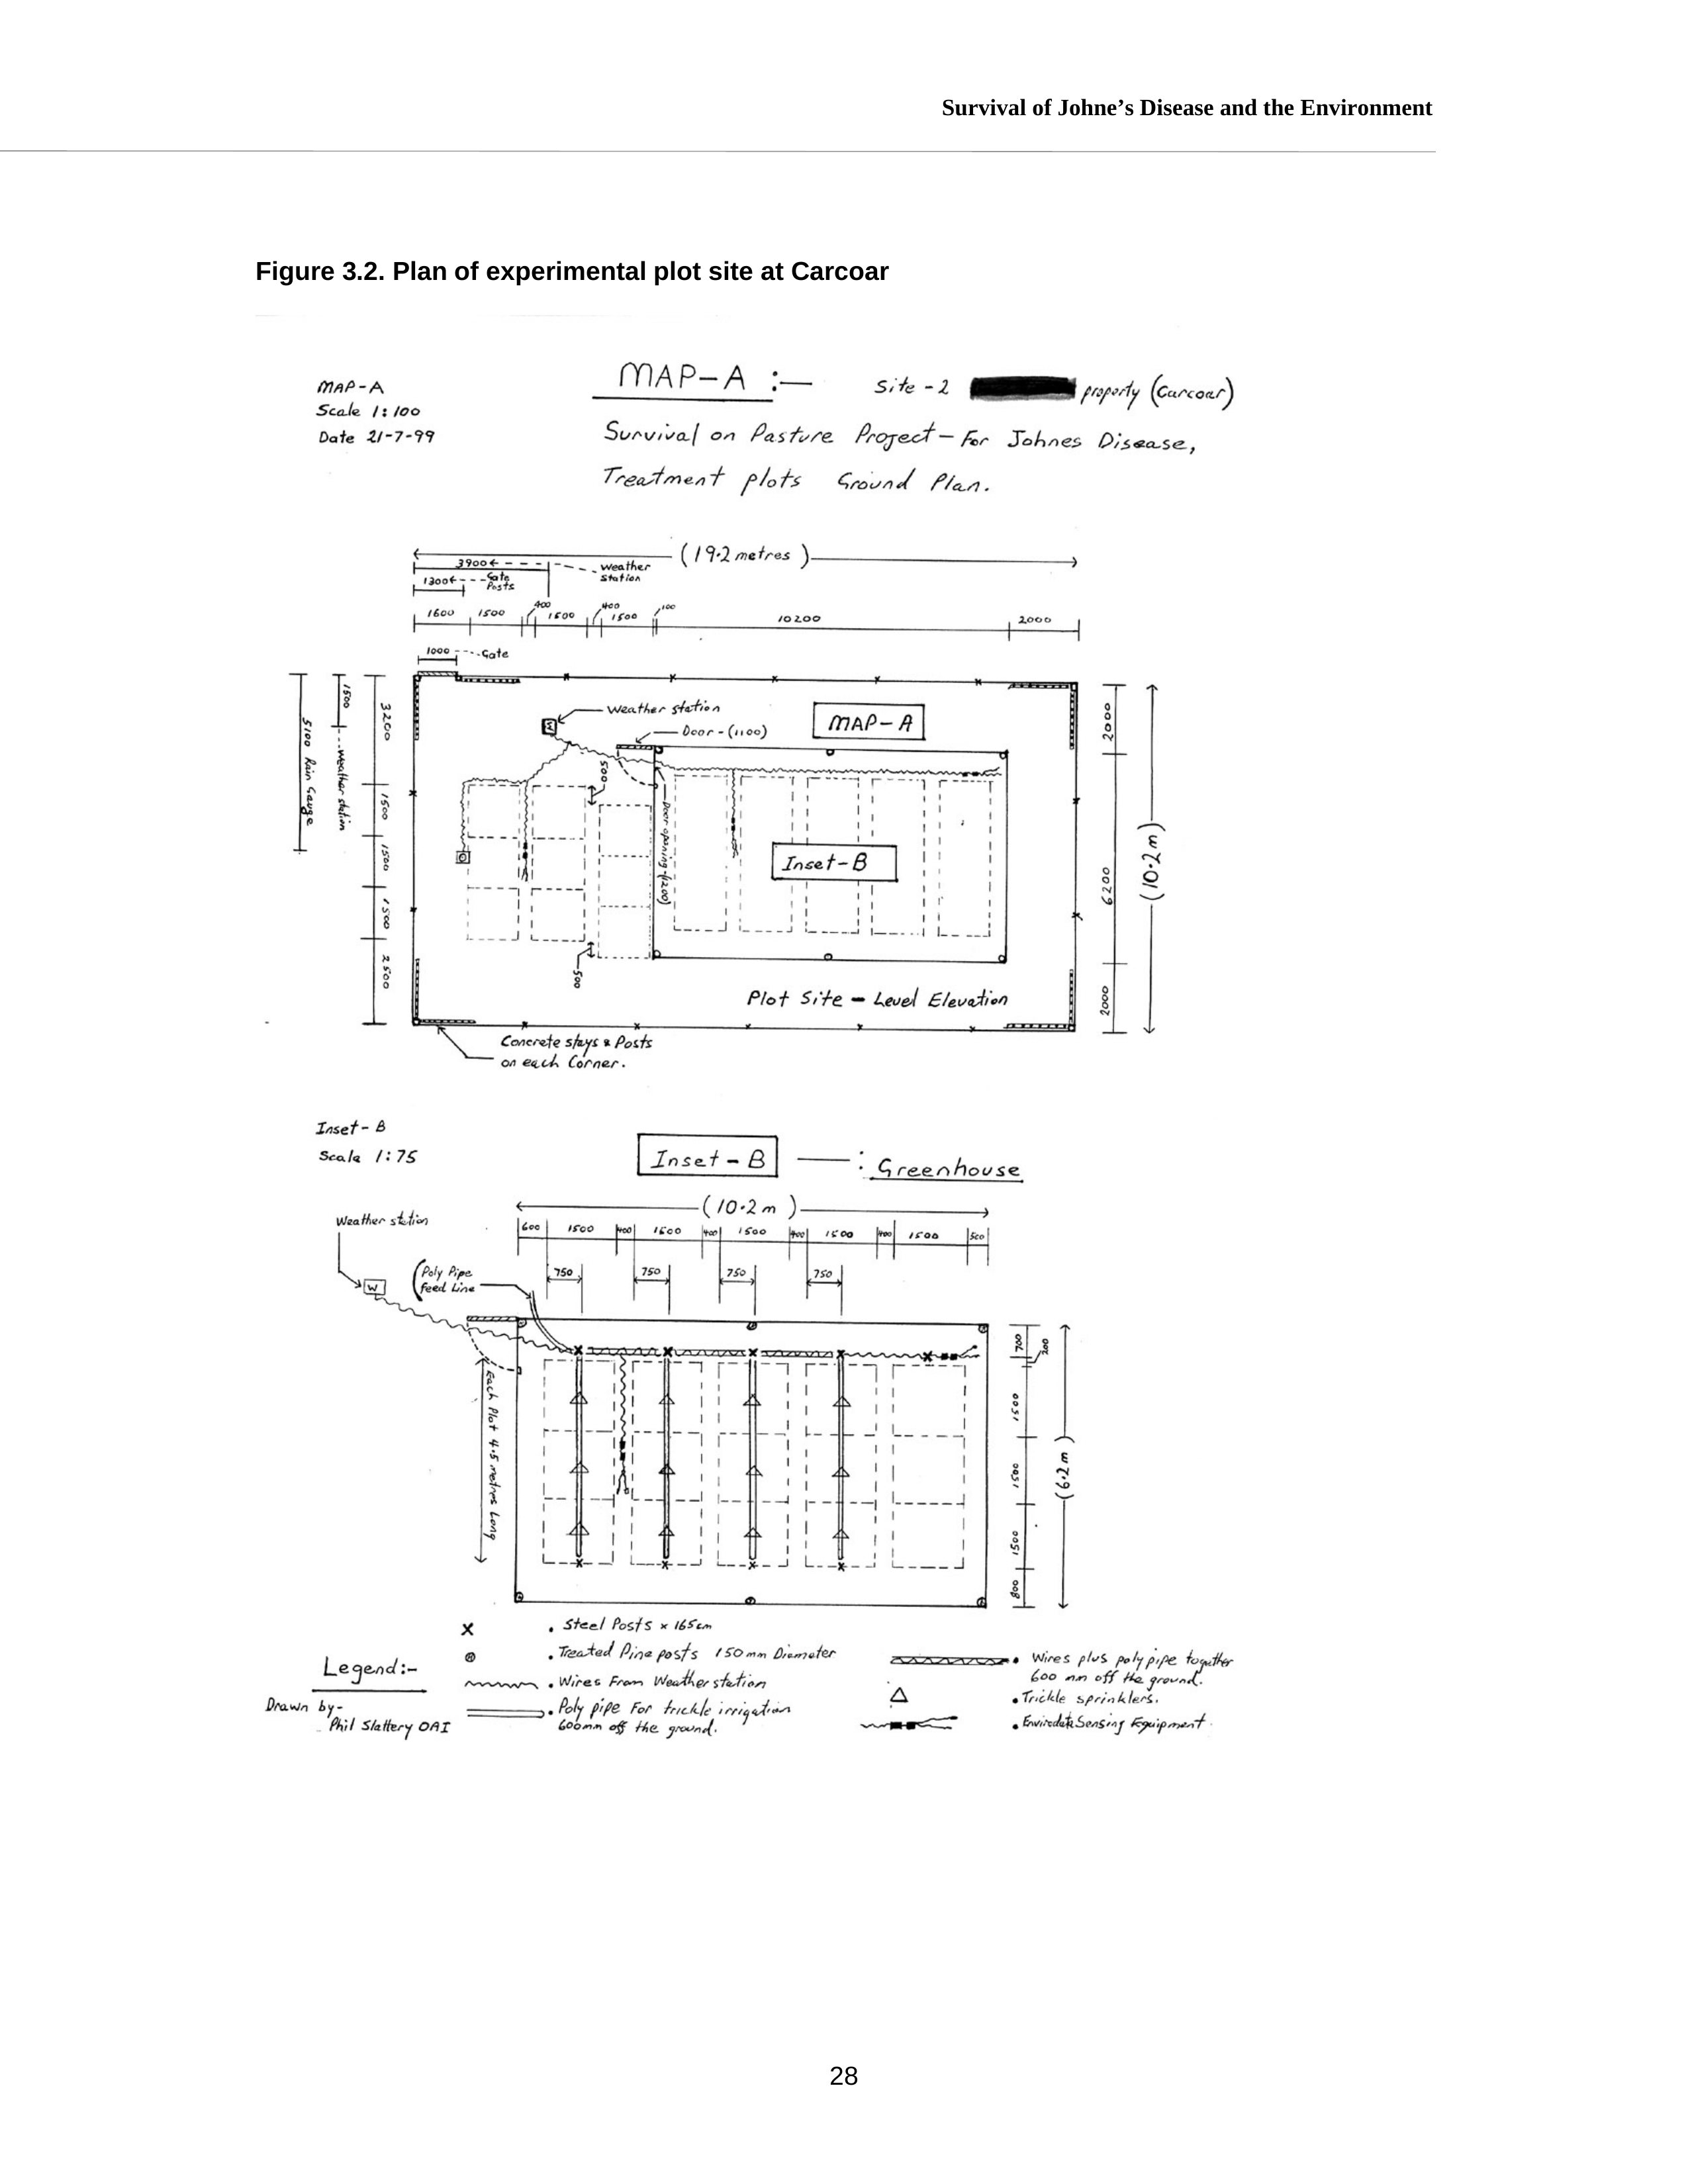 Survival of Johne’s Disease and the Environment
Figure 3.2. Plan of experimental plot site at Carcoar
MAP-A
Scale 1:100
Date 21-7-99
MAP-A :—
Site-2 property (Carcoar)
Survival on Pasture Project - For Johnes Disease,
Treatment plots Ground Plan.
(19.2 metres)
3900
Weather
Station
1300
Gate
Posts
1600 1500 400 1500 400 1500 100 10200 2000
1000 Gate
5100 Rain Gauge
1500 weather station
3200
1500
1500
1500
2500
Weather station
Door-(1100)
MAP-A
W
500
Door opening-(1200)
Inset-B
500
Plot Site - Level Elevation
2000
6200
2000
(10.2m)
Concrete stays & Posts
on each Corner.
Inset-B
Scale 1:75
Inset-B —: Greenhouse
(10.2m)
Weather station
600 1500 400 1500 400 1500 400 1500 400 1500 500
Poly Pipe
feed Line
750 750 750 750
W
Each Plot 4.5 metres Long
700
200
1500
1500
1500
800
(6.2m)
Legend:-
Drawn by-
Phil Slattery OAI
X . Steel Posts x 165cm
. Treated Pine posts 150mm Diameter
. Wires From Weather station
. Poly pipe For trickle irrigation
600mm off the ground.
. Wires plus poly pipe together
600 mm off the ground.
. Trickle sprinklers.
. Envirodata Sensing Equipment.
28